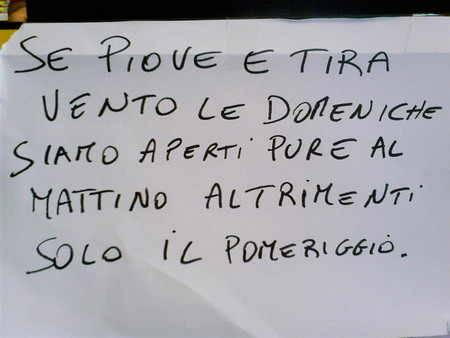 SE PIOVE E TIRA
VENTO LE DOMENICHE
SIAMO APERTI PURE AL
MATTINO ALTRIMENTI
SOLO IL POMERIGGIO.